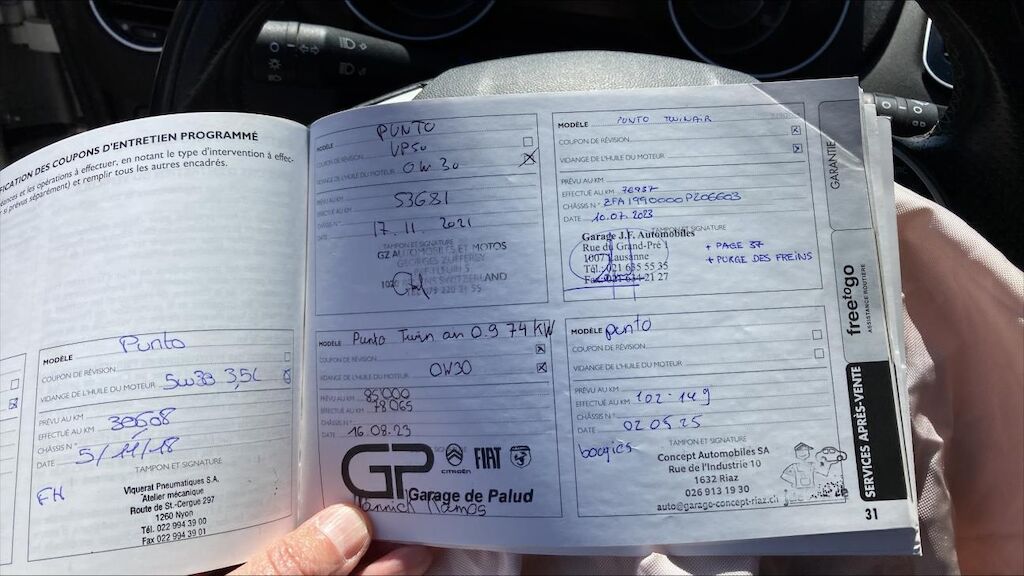 FICATION DES COUPONS D'ENTRETIEN PROGRAMMÉ
éances et les opérations à effectuer, en notant le type d'intervention à effec-
si prévus séparément) et remplir tous les autres encadrés.
MODÈLE Punto
COUPON DE RÉVISION
VIDANGE DE L'HUILE DU MOTEUR 5w30 3,5L
PRÉVU AU KM
EFFECTUÉ AU KM 39608
CHÂSSIS N°
DATE 5/11/18
TAMPON ET SIGNATURE
FH
Viquerat Pneumatiques S.A.
Atelier mécanique
Route de St.-Cergue 297
1260 Nyon
Tél. 022 994 39 00
Fax 022 994 39 01
PUNTO
MODÈLE
COUPON DE RÉVISION VP50
VIDANGE DE L'HUILE DU MOTEUR 0W30
PRÉVU AU KM
EFFECTUÉ AU KM 53681
CHÂSSIS N°
DATE 17.11.2021
TAMPON ET SIGNATURE
GZ AUTOMOBILES ET MOTOS
SWITZERLAND
MODÈLE PUNTO TWINAIR
COUPON DE RÉVISION
VIDANGE DE L'HUILE DU MOTEUR
PRÉVU AU KM
EFFECTUÉ AU KM 76937
CHÂSSIS N° ZFA1990000P206603
DATE 10.07.2023
TAMPON ET SIGNATURE
Garage J.F. Automobiles
Rue du Grand-Pré 1
1007 Lausanne
Tél. 021 635 55 35
Fax 021 634 21 27
+ PAGE 37
+ PURGE DES FREINS
MODÈLE Punto Twin air 0.9 74 kW
COUPON DE RÉVISION
VIDANGE DE L'HUILE DU MOTEUR 0W30
PRÉVU AU KM 85'000
EFFECTUÉ AU KM 78065
CHÂSSIS N°
DATE 16.08.23
TAMPON ET SIGNATURE
GP CITROËN FIAT
Garage de Palud
Yannick Ramos
MODÈLE punto
COUPON DE RÉVISION
VIDANGE DE L'HUILE DU MOTEUR
PRÉVU AU KM
EFFECTUÉ AU KM 102.149
CHÂSSIS N°
DATE 02 05 25
TAMPON ET SIGNATURE
bougies
Concept Automobiles SA
Rue de l'Industrie 10
1632 Riaz
026 913 19 30
auto@garage-concept-riaz.ch
GARANTIE
freetogo
ASSISTANCE ROUTIÈRE
SERVICES APRÈS-VENTE
31